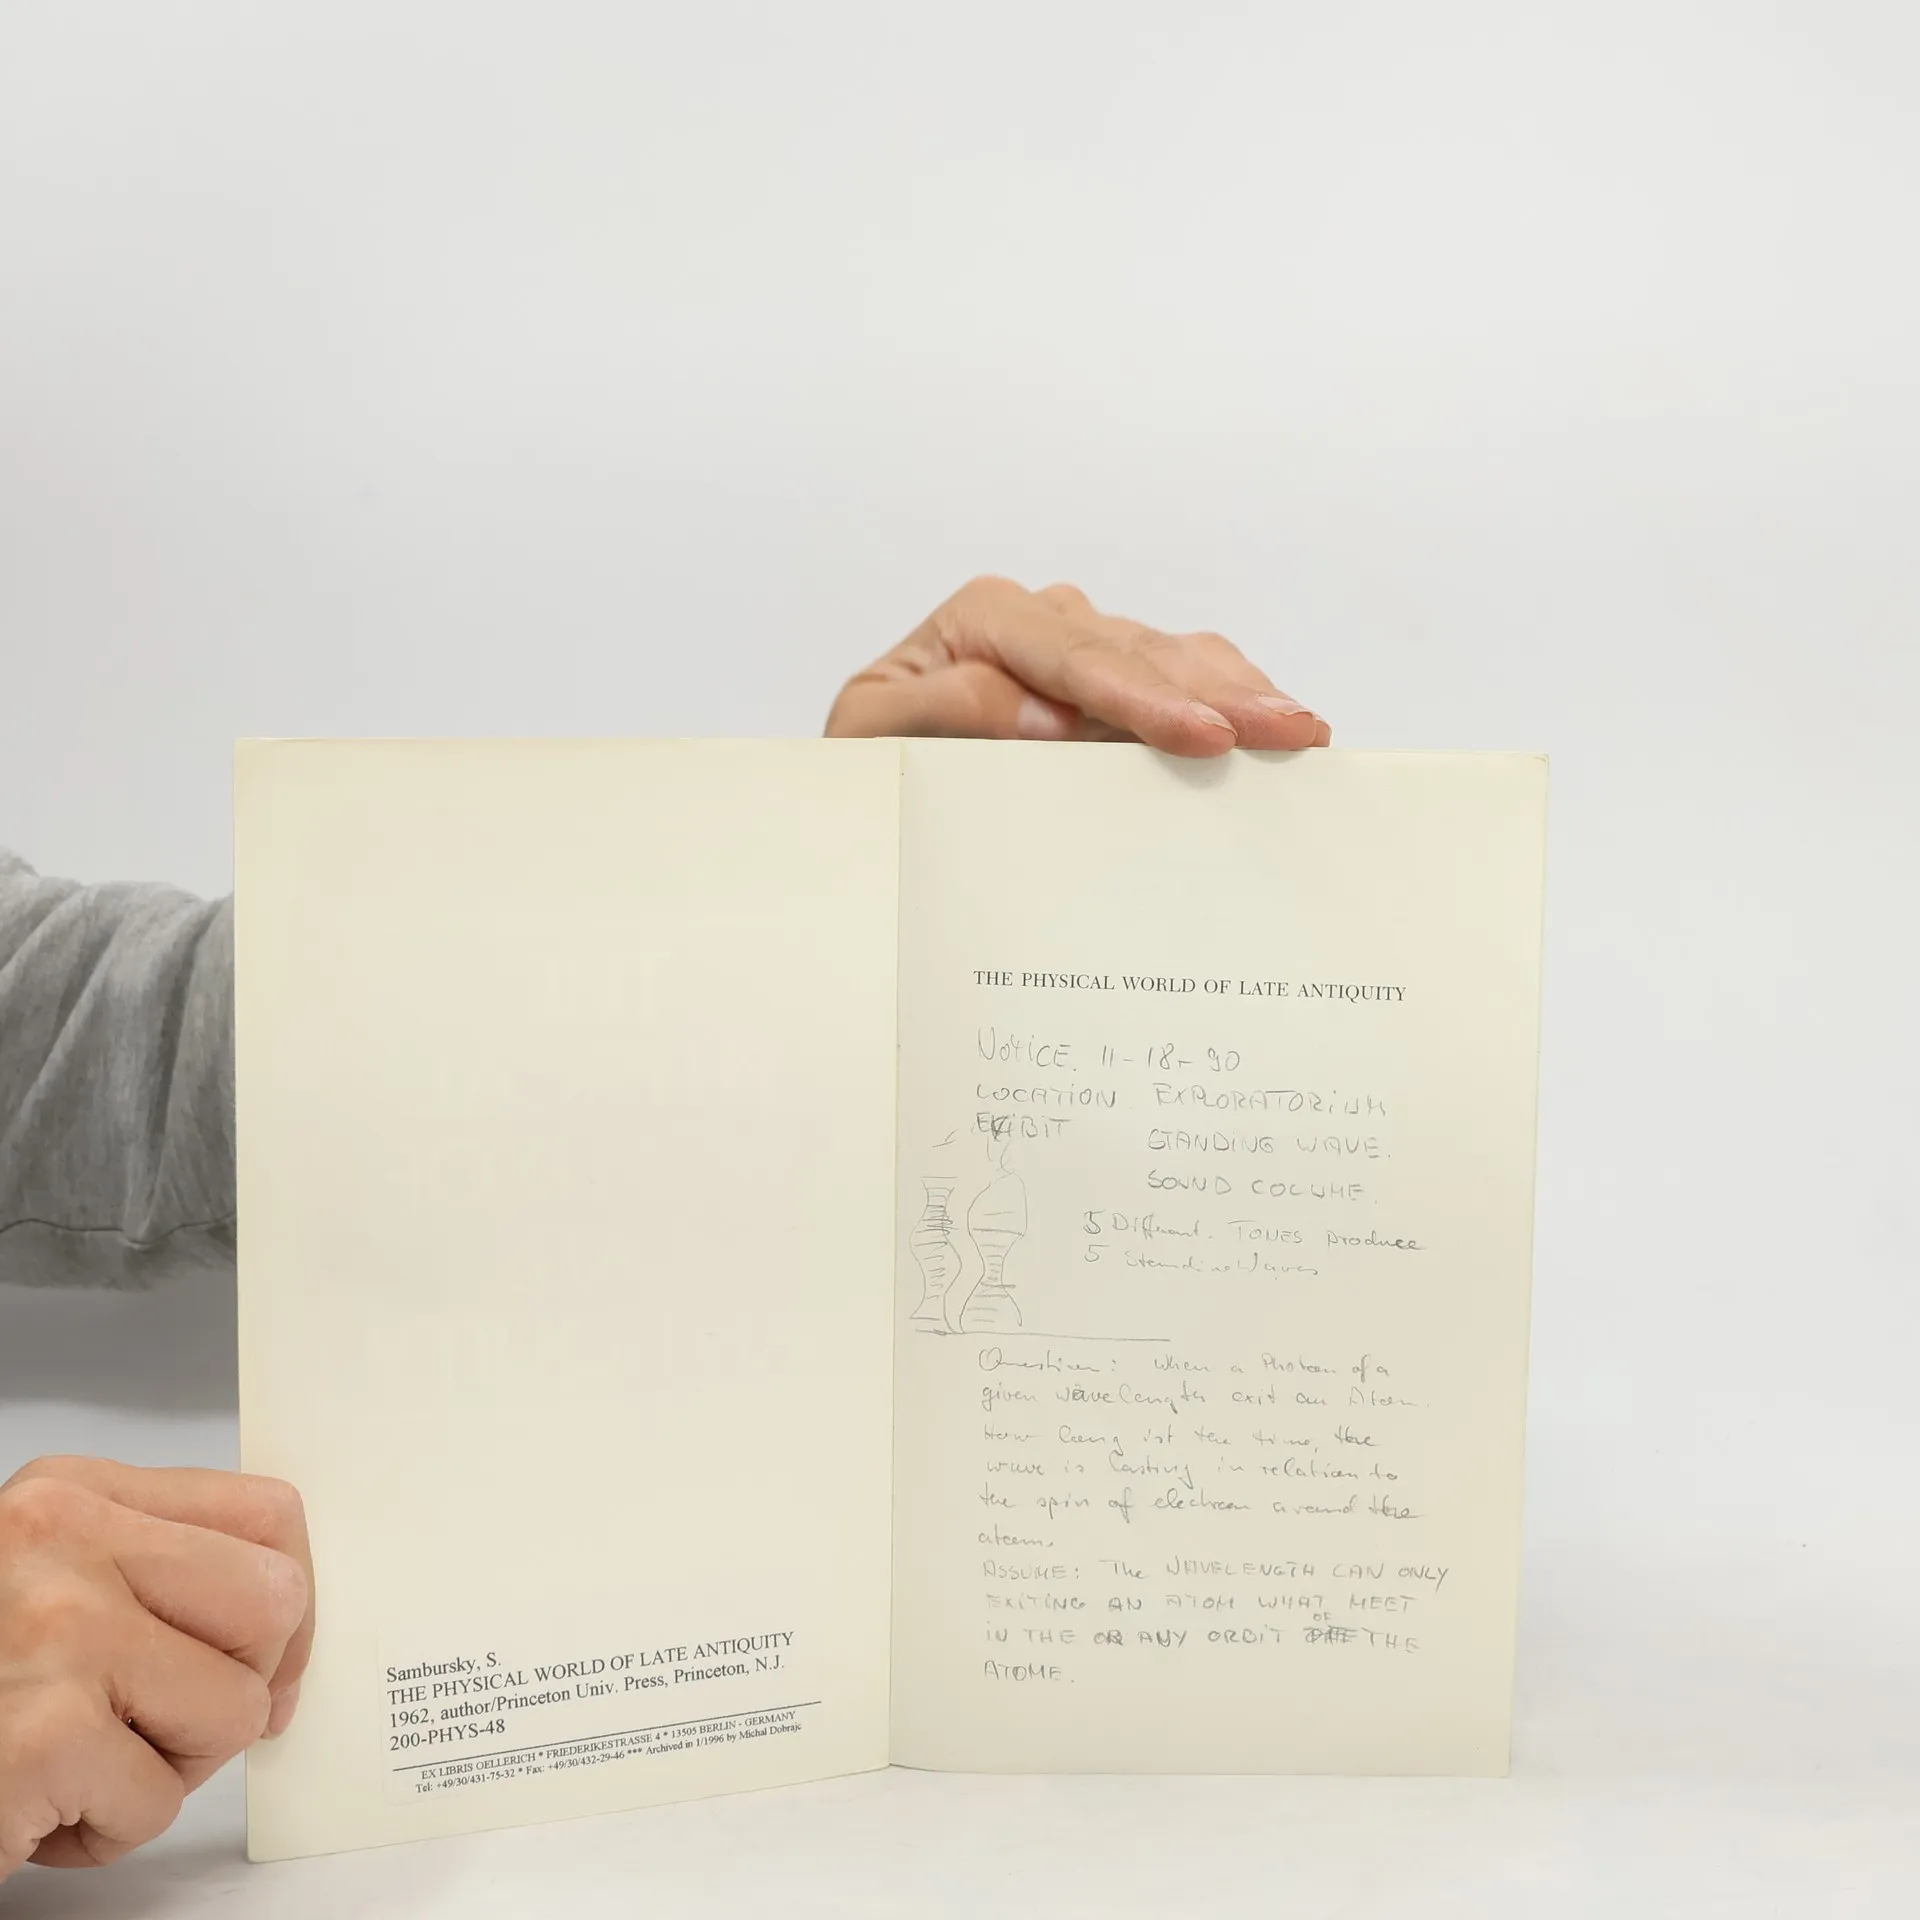 Sambursky, S.
THE PHYSICAL WORLD OF LATE ANTIQUITY
1962, author/Princeton Univ. Press, Princeton, N.J.
200-PHYS-48
EX LIBRIS OELLERICH * FRIEDERIKESTRASSE 4 * 13505 BERLIN - GERMANY
Tel: +49/30/431-75-32 * Fax: +49/30/432-29-46 *** Archived in 1/1996 by Michal Dobrajc
THE PHYSICAL WORLD OF LATE ANTIQUITY
NOTICE. 11-18-90
LOCATION EXPLORATORIUM
EXIBIT
STANDING WAVE.
SOUND COLUME.
5 Different. TONES produce
5 Standing Waves
Question: when a Photon of a
given wavelength exit an Atom.
How long ist the time, the
wave is lasting in relation to
the spin of electron around the
atom.
ASSUME: The WAVELENGTH CAN ONLY
EXITING AN ATOM WHAT MEET
IN THE OR ANY ORBIT OF THE
ATOME.